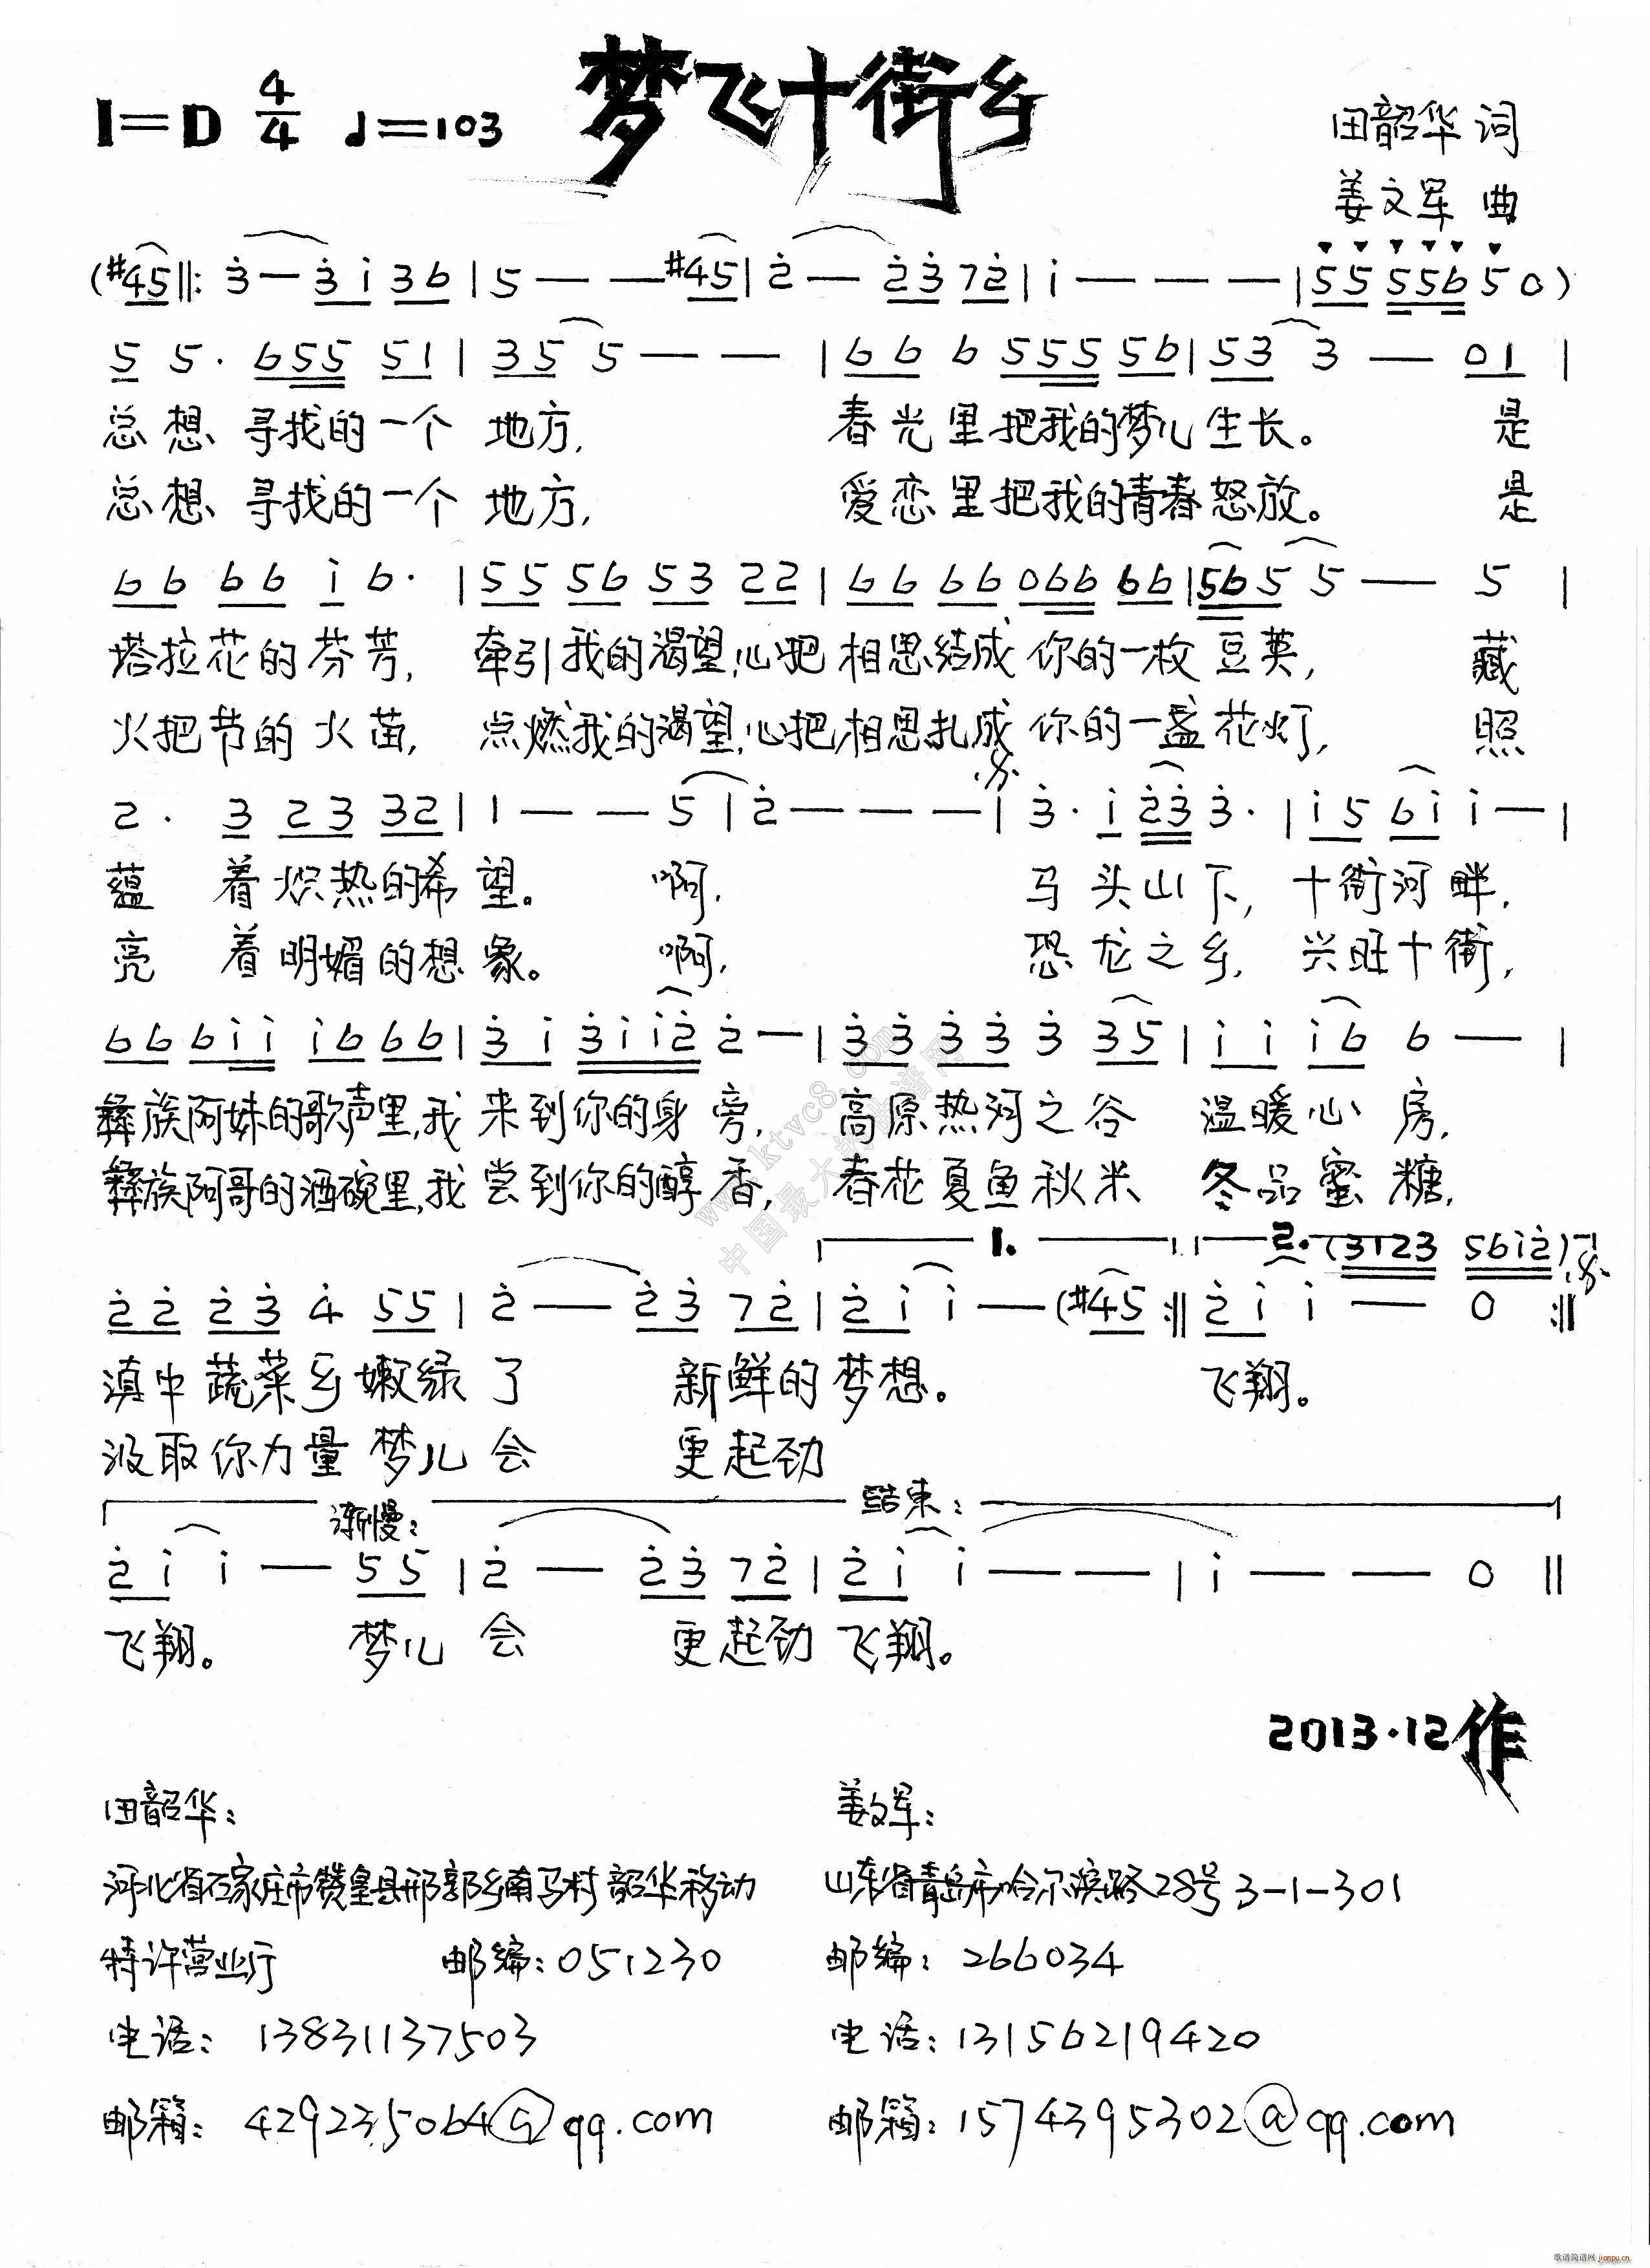 梦飞十街乡
1=D 4/4 ♩=103
田韶华 词
姜文军 曲
(#45‖: 3̇ — 3̇ i 36 | 5 — — #45 | 2̇ — 2̇3̇ 72̇ | i — — — | 55 556 5 0)
5 5· 655 51 | 35 5 — — | 66 6 555 56 | 53 3 — 01 |
总想 寻找的一个 地方, 春光里把我的梦儿生长。 是
总想 寻找的一个 地方, 爱恋里把我的青春怒放。 是
66 66 i 6· | 55 56 53 22 | 66 66 066 66 | 565 5 — 5 |
塔拉花的芬芳, 牵引我的渴望,心把相思结成你的一枚豆荚, 藏
火把节的火苗, 点燃我的渴望,心把相思扎成你的一盏花灯, 照
2· 3 23 32 | 1 — — 5 | 2̇ — — — | 3̇· i 2̇3̇ 3̇· | i5 6i i — |
蕴 着炽热的希望。 啊, 马头山下, 十街河畔,
亮 着明媚的想象。 啊, 恐龙之乡, 兴旺十街,
66 6ii i6 66 | 3̇ i 3̇ii2̇ 2̇ — | 3̇3̇ 3̇3̇ 3̇ 35 | i i i6 6 — |
彝族阿妹的歌声里,我来到你的身旁, 高原热河之谷 温暖心房,
彝族阿哥的酒碗里,我尝到你的醇香, 春花夏鱼秋米 冬品蜜糖,
1. 2. (3123 56i2̇)
2̇2̇ 2̇3̇ 4̇ 55 | 2̇ — 2̇3̇ 72̇ | 2̇i i — (#45 :‖ 2̇i i — 0 :‖
滇中蔬菜乡嫩绿了 新鲜的梦想。 飞翔。
汲取你力量梦儿会 更起劲
渐慢: 结束:
2̇i i — 55 | 2̇ — 2̇3̇ 72̇ | 2̇i i — — | i — — 0 ‖
飞翔。 梦儿会 更起劲飞翔。
2013·12作
田韶华:
河北省石家庄市赞皇县邢郭乡南马村韶华移动
特许营业厅 邮编:051230
电话: 13831137503
邮箱: 429235064@qq.com
姜文军:
山东省青岛市哈尔滨路28号3-1-301
邮编: 266034
电话:13156219420
邮箱:1574395302@qq.com
www.ktvc8.com
中国最大的歌谱网
歌谱简谱网 jianpu.cn